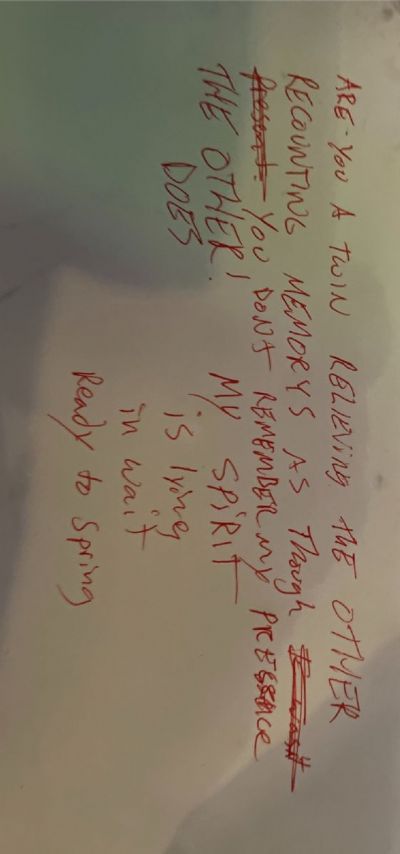 ARE-YOU A TWIN RELIEVING THE OTHER
RECOUNTING MEMORYS AS THOUGH
YOU DONT REMEMBER MY PRESSENCE
THE OTHER!
DOES
MY SPIRIT
is lying
in wait
Ready to Spring